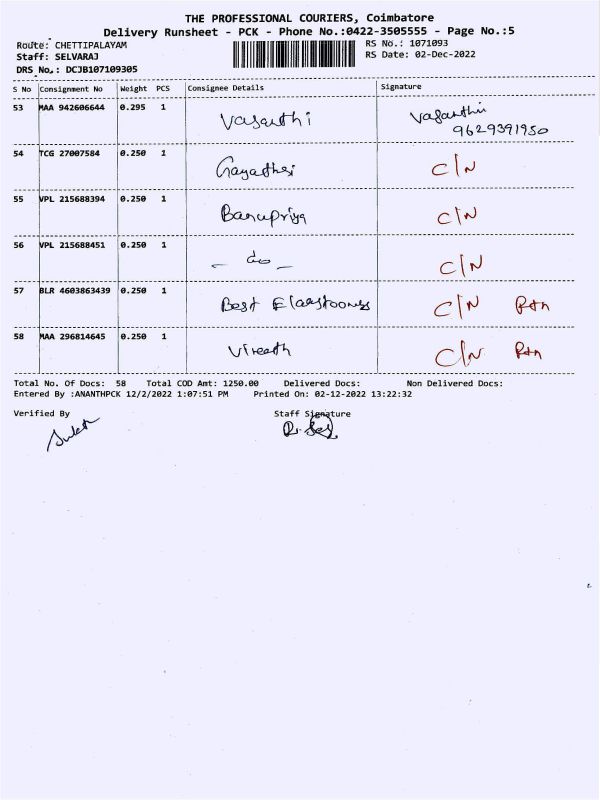 THE PROFESSIONAL COURIERS, Coimbatore
Delivery Runsheet - PCK - Phone No.:0422-3505555 - Page No.:5
Route: CHETTIPALAYAM
RS No.: 1071093
Staff: SELVARAJ
RS Date: 02-Dec-2022
DRS No.: DCJB107109305
S No Consignment No Weight PCS Consignee Details Signature
53 MAA 942606644 0.295 1 Vasanthi Vasanthi
9629391950
54 TCG 27007584 0.250 1 Gayathri C/N
55 VPL 215688394 0.250 1 Banupriya C/N
56 VPL 215688451 0.250 1 - do - C/N
57 BLR 4603863439 0.250 1 Best C/N Rtn
58 MAA 296814645 0.250 1 C/N Rtn
Total No. Of Docs: 58 Total COD Amt: 1250.00 Delivered Docs: Non Delivered Docs:
Entered By :ANANTHPCK 12/2/2022 1:07:51 PM Printed On: 02-12-2022 13:22:32
Verified By Staff Signature